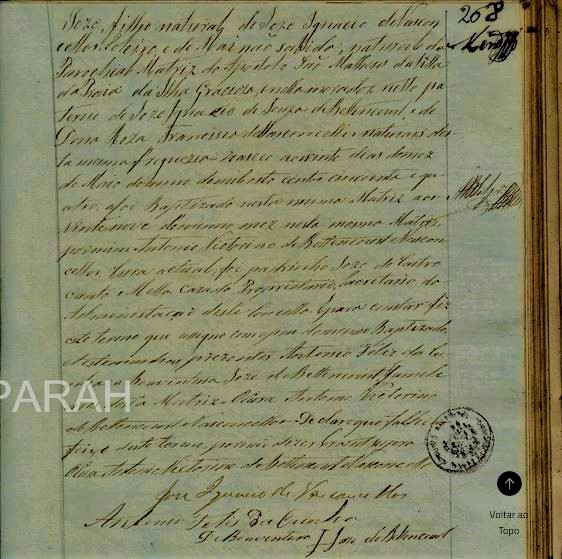 Joze, filho natural de Joze Ignacio de Vascon-
cellos, solteiro, e de Mai não sabida, natural da
Parochial Matriz do Apostolo São Matheus da Villa
da Praia da Ilha Graciosa, neto pa-
terno de Joze Ignacio de Souza de Bettencourt, e de
Dona Roza Francisca de Vasconcellos naturais des-
ta mesma freguezia nasceo aos vinte dias do mez
de Maio do anno de mil oito centos cincoenta e qua-
tro, e foi Baptizado nesta mesma Matriz aos
vinte nove do mesmo mez nesta mesma Matriz,
por mim Antonio Victorino de Bettencourt Vascon-
cellos, Cura actual, foi padrinho Joze de Castro
Canto e Mello, Cazado, Proprietario, Secretario da
Administração deste Concelho. E para constar fiz
este termo que asigno com o pai do mesmo Baptizado,
e testemunhas prezentes Antonio Felis da Cu-
nha, e Boaventura Joze de Bettencourt
desta Matriz. O Cura Antonio Victorino
de Bettencourt Vasconcellos. Declaro que
este termo, por
O Cura Antonio Victorino de Bettencourt Vasconcellos
Joze Ignacio de Vasconcellos
Antonio Felis da Cunha
Boaventura Joze de Bettencourt
208
PARAH
Voltar ao
Topo